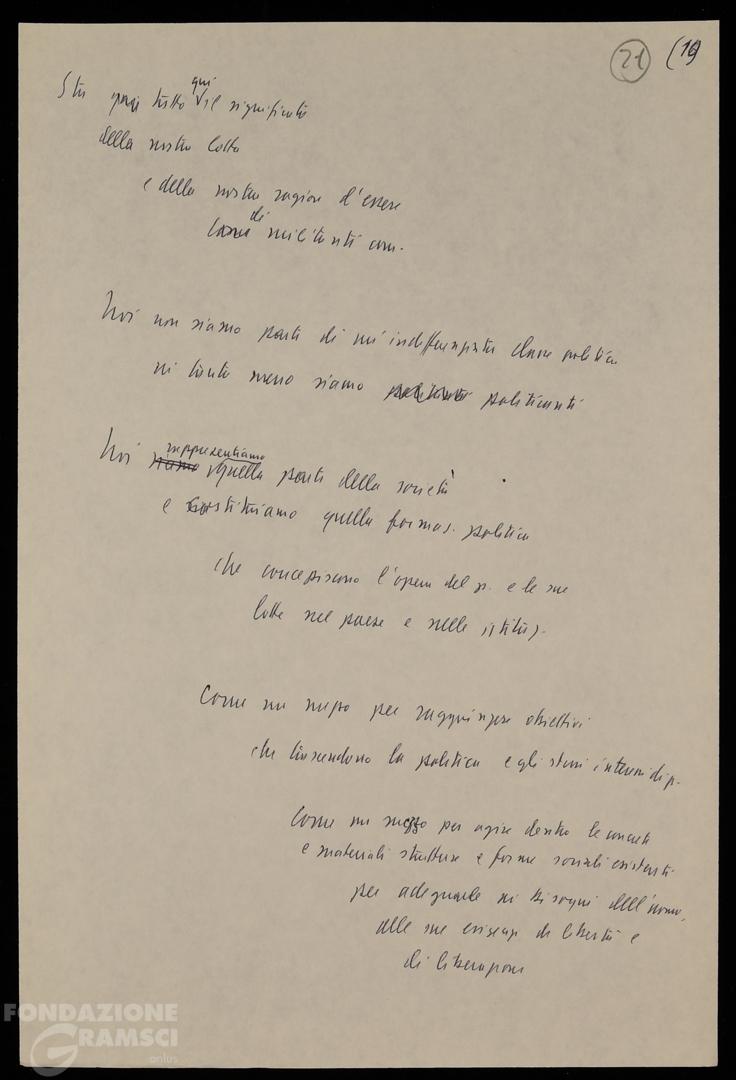 21 (16)
Sta quasi tutto qui il significato
della nostra lotta
e della nostra ragione d'essere
come di militanti com.
Noi non siamo parte di un'indifferenziata classe politica
né tanto meno siamo politicanti
Noi siamo rappresentiamo quella parte della società
e costituiamo quella formaz. politica
che concepiscono l'opera del p. e le sue
lotte nel paese e nelle istituz.
Come un mezzo per raggiungere obiettivi
che trascendono la politica e gli stessi interessi di p.
Come un mezzo per agire dentro le concrete
e materiali strutture e forme sociali esistenti
per adeguarle ai bisogni dell'uomo,
alle sue esigenze di libertà e
di liberazione
FONDAZIONE
GRAMSCI
onlus